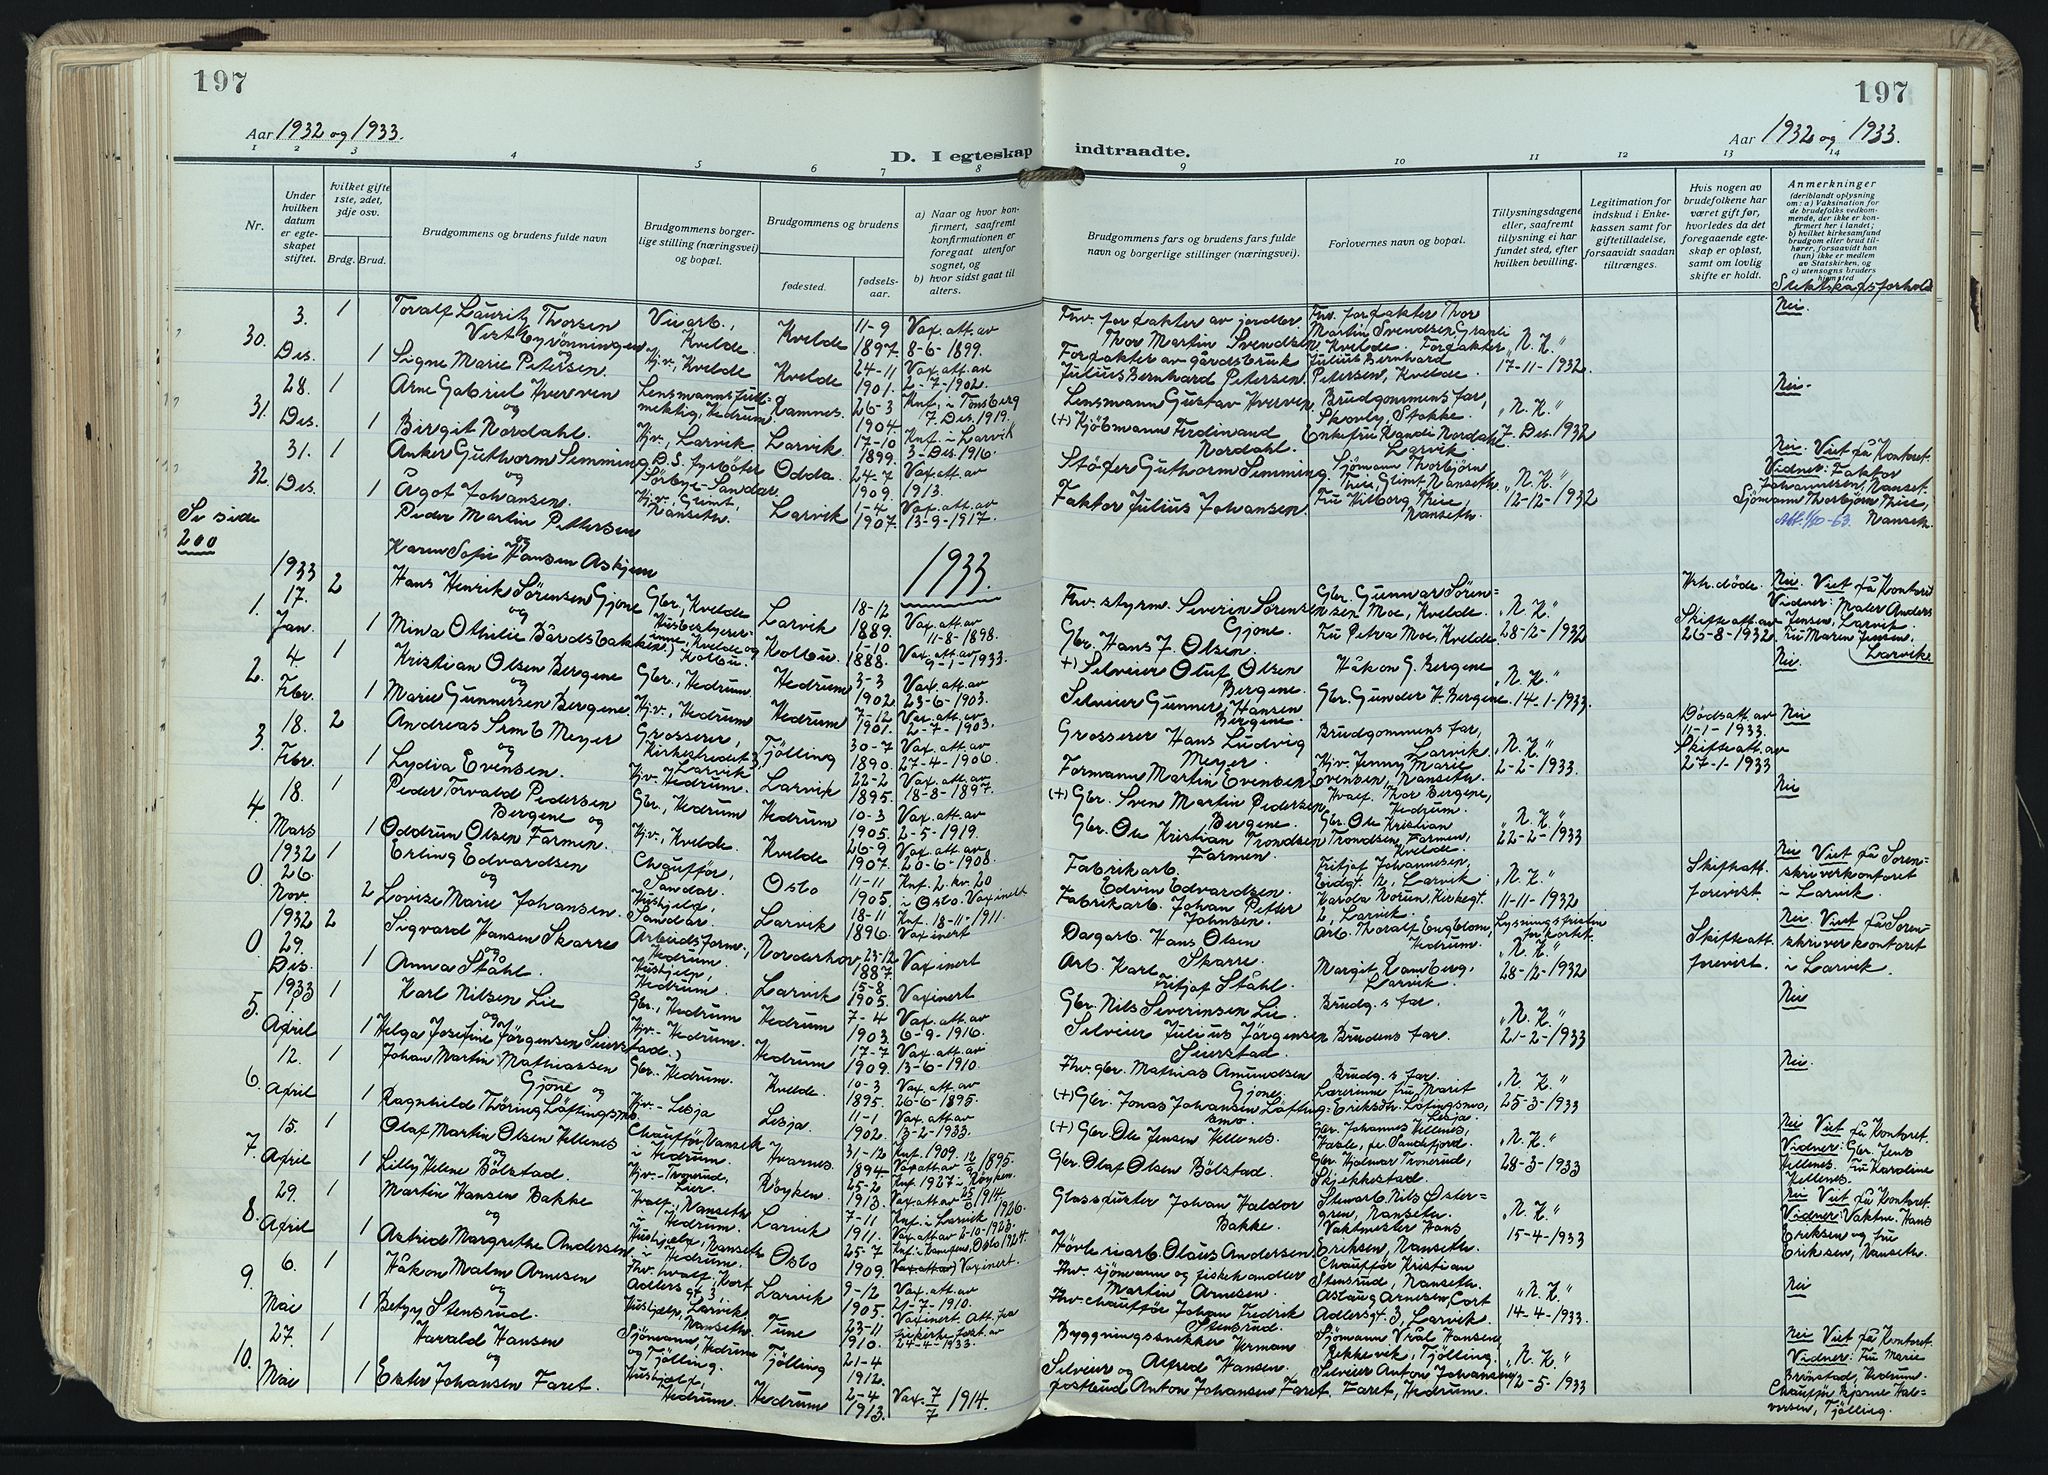 197
197
Aar 1932 og 1933.
Aar 1932 og 1933.
D. I egteskap indtraadte.
1 2 3 4 5 6 7 8 9 10 11 12 13 14
Nr.
Under hvilken datum er egteskapet stiftet.
hvilket gifte 1ste, 2det, 3dje osv.
Brdg. Brud.
Brudgommens og brudens fulde navn
Brudgommens borgerlige stilling (næringsvei) og bopæl.
Brudgommens og brudens
fødested.
fødselsaar.
a) Naar og hvor konfirmert, saafremt konfirmationen er foregaat utenfor sognet, og
b) hvor sidst gaat til alters.
Brudgommens fars og brudens fars fulde navn og borgerlige stillinger (næringsvei).
Forlovernes navn og bopæl.
Tillysningsdagene eller, saafremt tillysning ei har fundet sted, efter hvilken bevilling.
Legitimation for indskud i Enkekassen samt for giftetilladelse, forsaavidt saadan tiltrænges.
Hvis nogen av brudefolkene har været gift før, hvorledes da det foregaaende egteskap er opløst, samt om lovlig skifte er holdt.
Anmerkninger
(deriblandt oplysning om: a) Vaksination for de brudefolks vedkommende, der ikke er konfirmert her i landet; b) hvilket kirkesamfund brudgom eller brud tilhører, forsaavidt han (hun) ikke er medlem av Statskirken, og c) utensogns bruders hjemsted
Slektskapsforhold
30. 3. Des. 1 Toralf Lauritz Thorsen
og
1 Signe Marie Petersen.
Kvelde
Hj.v., Kvelde Kvelde
11-9 1897. Vax. att. av 8-6-1899.
24-11 1901. Vax. att. av 2-7-1902.
Thor Martin Svendsen
Julius Bernhard Petersen
Julius Bernhard Petersen, Kvelde.
„N. K." 17-11-1932.
Nei.
31. 28. Des. 1 Arne Gabriel Hverven
og
1 Birgit Nordahl.
Hedrum Ramnes.
Hj.v., Larvik Larvik
26-3 1904 Knf. i Tønsberg 7. Des. 1919.
17-10 1899. Knf. i Larvik 3-Des. 1916.
Lensmann Gustav Hverven
(+) Kjøbmann Ferdinand Nordahl.
Brudgommens far,
Enkefru Randi Nordahl Larvik.
„N. K." 7-Des. 1932
Nei.
32. 31. Des. 1 Anker Guthorm Simming
og
1 Aagot Johansen.
Odda.
Larvik
24-7 1909. Vax. att. av 1913.
1-4 1907. Vax. att. av 13-9-1917.
Guthorm Simming
Faktor Julius Johansen.
„N. K." 12-12-1932
Nei Viet på Kontoret.
Vidner: Faktor Johannesen, Nanset.
Se side 200
Peder Martin Pettersen
og
Karen Sofie Hansen Askjem
1933.
1. 1933 17. Jan. 2 Hans Henrik Sørensen Gjone
og
1 Mina Othilie Bårdsbakken.
Gbr., Kvelde Larvik
18-12 1889. Vax. att. av 11-8-1898.
1-10 1888. Vax. att. av 9-1-1933.
Severin Sørensen Gjone.
Gbr. Hans J. Olsen.
Gbr. Gunnar Sørensen Moe, Kvelde.
Fru Petra Moe, Kvelde
„N. K." 28-12-1932
Hstr. døde.
Skifteatt. av 26-8-1932
Nei. Viet på Kontoret
Vidner: Maler Anders Jensen, Larvik.
Fru Maren Jensen, Larvik
2. 4 Febr. 1 Kristian Olsen Bergene
og
1 Marie Gunnersen Bergene.
Gbr., Hedrum. Hedrum
Hj.v., Hedrum Hedrum
3-3 1902 Vax. att. av 23-6-1903.
7-12 1901. Vax. att. av 2-7-1903.
+) Selveier Oluf Olsen Bergene.
Selveier Gunner Hansen Bergene.
Håkon G. Bergene
Gbr. Gunder H. Bergene
„N. K." 14-1-1933.
Nei.
3. 18. Febr. 2 Andreas Semb Meyer
og
1 Lydia Evensen.
Grosserer, Larvik Tjølling
Hj.v., Hedrum. Larvik
30-7 1890. Vax. att. av 27-4-1906.
22-2 1895. Vax. att. av 18-8-1897.
Grosserer Hans Ludvig Meyer.
Formann Martin Evensen
Brudgommens far, Larvik.
Hj.v. Jenny Marie Evensen, Nanseth.
„N. K." 2-2-1933.
Dødsatt. av 11-1-1933.
Skifteatt. av 27-1-1933
Nei
4. 18. Mars 1 Peder Torvald Pedersen Bergene og
1 Oddrun Olsen Farmen.
Gbr., Hedrum Hedrum
Hj.v., Kvelde. Kvelde
10-3 1905. Vax. att. av 2-5-1919.
26-9 1907. Vax. att. av 20-6-1908.
(+) Gbr. Sven Martin Pedersen Bergene.
Gbr. Ole Kristian Trondsen Farmen.
Hvalf. Thor Bergene, Hedrum.
Gbr. Ole Kristian Trondsen, Farmen, Kvelde.
„N. K." 22-2-1933
Nei
0. 1932 26. Nov. 1 Erling Edvardsen
og
2 Lovise Marie Johansen.
Chauffør, Sandar. Oslo
Hushjelp, Sandar. Larvik
11-11 1905. Knf. 2. kv. 20 i Oslo. Vaxinert
18-11 1896. Knf. 18-11-1911. Vaxinert
Fabrikarb. Edvin Edvardsen.
Fabrikarb. Johan Petter Johnsen.
Fritjof Johannesen, Larvik
„N. K." 11-11-1932
Skifteatt. forevist.
Nei Viet på Sorenskriverkontoret i Larvik
0. 1932 29. Des. 2 Sigvard Hansen Skarre
og
1 Anna Ståhl.
Arbeidsform., Hedrum. Norderhov
Hushjelp, Hedrum Larvik
23-12 1887 Vaxinert
15-8 1905. Vaxinert
Dagarb. Hans Olsen Skarre.
Arb. Karl Fritjof Ståhl.
Arb. Thoralf Engblom, Hedrum.
Margit Ramberg, Larvik.
Lysningsfristen forkortet. „N. K." 28-12-1932
Skifteatt. forevist.
Nei Viet på Sorenskriverkontoret i Larvik.
5. 1933 1. April 1 Karl Nilsen Lie
og
1 Helga Josefine Jørgensen Seierstad.)
Gbr., Hedrum Hedrum
Hj.v. Hedrum. Hedrum
7-4 1903. Vax. att. av 6-9-1916.
17-7 1909. Vax. att. av 13-6-1910.
Gbr. Nils Severinsen Lie
Selveier Julius Jørgensen Seierstad.
Brudg.s far.
Brudens far.
„N. K." 21-2-1933
Nei
6. 12. April 1 Johan Martin Mathiassen Gjone og
1 Ragnhild Thøring Løftingsmo.
Gbr. Hedrum. Kvelde.
Hj.v. - Lesja Lesja.
10-3 1895. Vax. att. av 26-6-1895.
11-1 1902. Vax. att. av 13-2-1933.
Fhv. gbr. Mathias Amundsen Gjone.
(+) Gbr. Jonas Johansen Løftingsmo
Brudg.s far.
Lærerinne Fru Marit Eriksdtr. Løftingsmo, Lesja
„N. K." 25-3-1933
Nei.
7. 15. April 1 Olaf Martin Olsen Hellenes
og
1 Lilly Helene Bølstad.
Hvarnes
Lier. Røyken.
31-12 1894. Knf. 1909.
25-2 1913. Knf. 1927 i Røyken.
(+) Gbr. Ole Jensen Hellenes.
Gbr. Olaf Olsen Bølstad.
Gbr. Johannes Hellenes,
Gbr. Hjalmar Tronerud, Skjekkestad.
„N. K." 28-3-1933
Nei Viet på Kontoret.
Vidner: Gbr. Jens Hellenes. Fru Karoline Hellenes.
8. 29. April 1 Martin Hansen Bakke
og
1 Astrid Margrethe Andersen
Hvalf., Nanseth Hedrum. Larvik
Hushjelp, Nanseth i Hedrum. Oslo
7-11 1911. Knf. i Larvik
25-7 1909. Vaxinert.
Johan Haldor Bakke.
Høvleriarb. Olaus Andersen
Stewart Nils Østergren, Nanseth.
Vaktmester Hans Eriksen, Nanseth.
„N. K." 15-4-1933
Nei Viet på Kontoret.
Vidner: Vaktm. Hans Eriksen og fru Eriksen, Nanseth.
9. 6. Mai 1 Håkon Malm Arnesen
og
1 Betzy Stensrud.
Larvik
Nanseth. Tune
9-12 1905. Vax. att. av 21-7-1910.
23-11 1910. 24-4-1933.
Fhv. sjømann og fiskehandler Martin Arnesen.
Fhv. chauffør Johan Fredrik Stensrud.
Chauffør Kristian Stensrud, Nanseth.
Aslaug Arnesen, Cort Adlersgt. 3, Larvik.
„N. K." 14-4-1933.
Nei
10. 27. Mai 1 Harald Hansen
og
1 Ester Johansen Faret.
Sjømann, Hedrum og Tjølling. Tjølling
Hushjelp, Hedrum. Hedrum
21-4 1912.
2-4 1913. Vax. 7/7 1914.
Byggningssnekker Herman Alfred Hansen.
Selveier og Anton Johansen Faret.
Sjømann Vrål Hansen, Rekkevik, Tjølling.
Selveier Anton Johansen Faret, Hedrum.
„N. K." 12-5-1933
Nei Viet på Kontoret.
Vidner: Fru Marie Brønstad, Hedrum. Chauffør Bjarne Halvorsen, Tjølling.